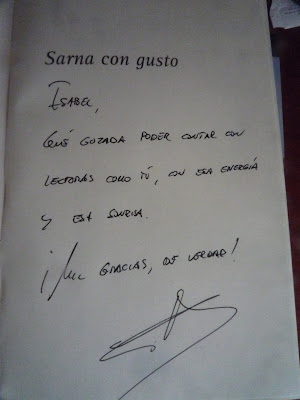 Sarna con gusto
ISABEL,
QUÉ GOZADA PODER CONTAR CON
LECTORAS COMO TÚ, CON ESA ENERGÍA
Y ESA SONRISA.
¡MIL GRACIAS, DE VERDAD!